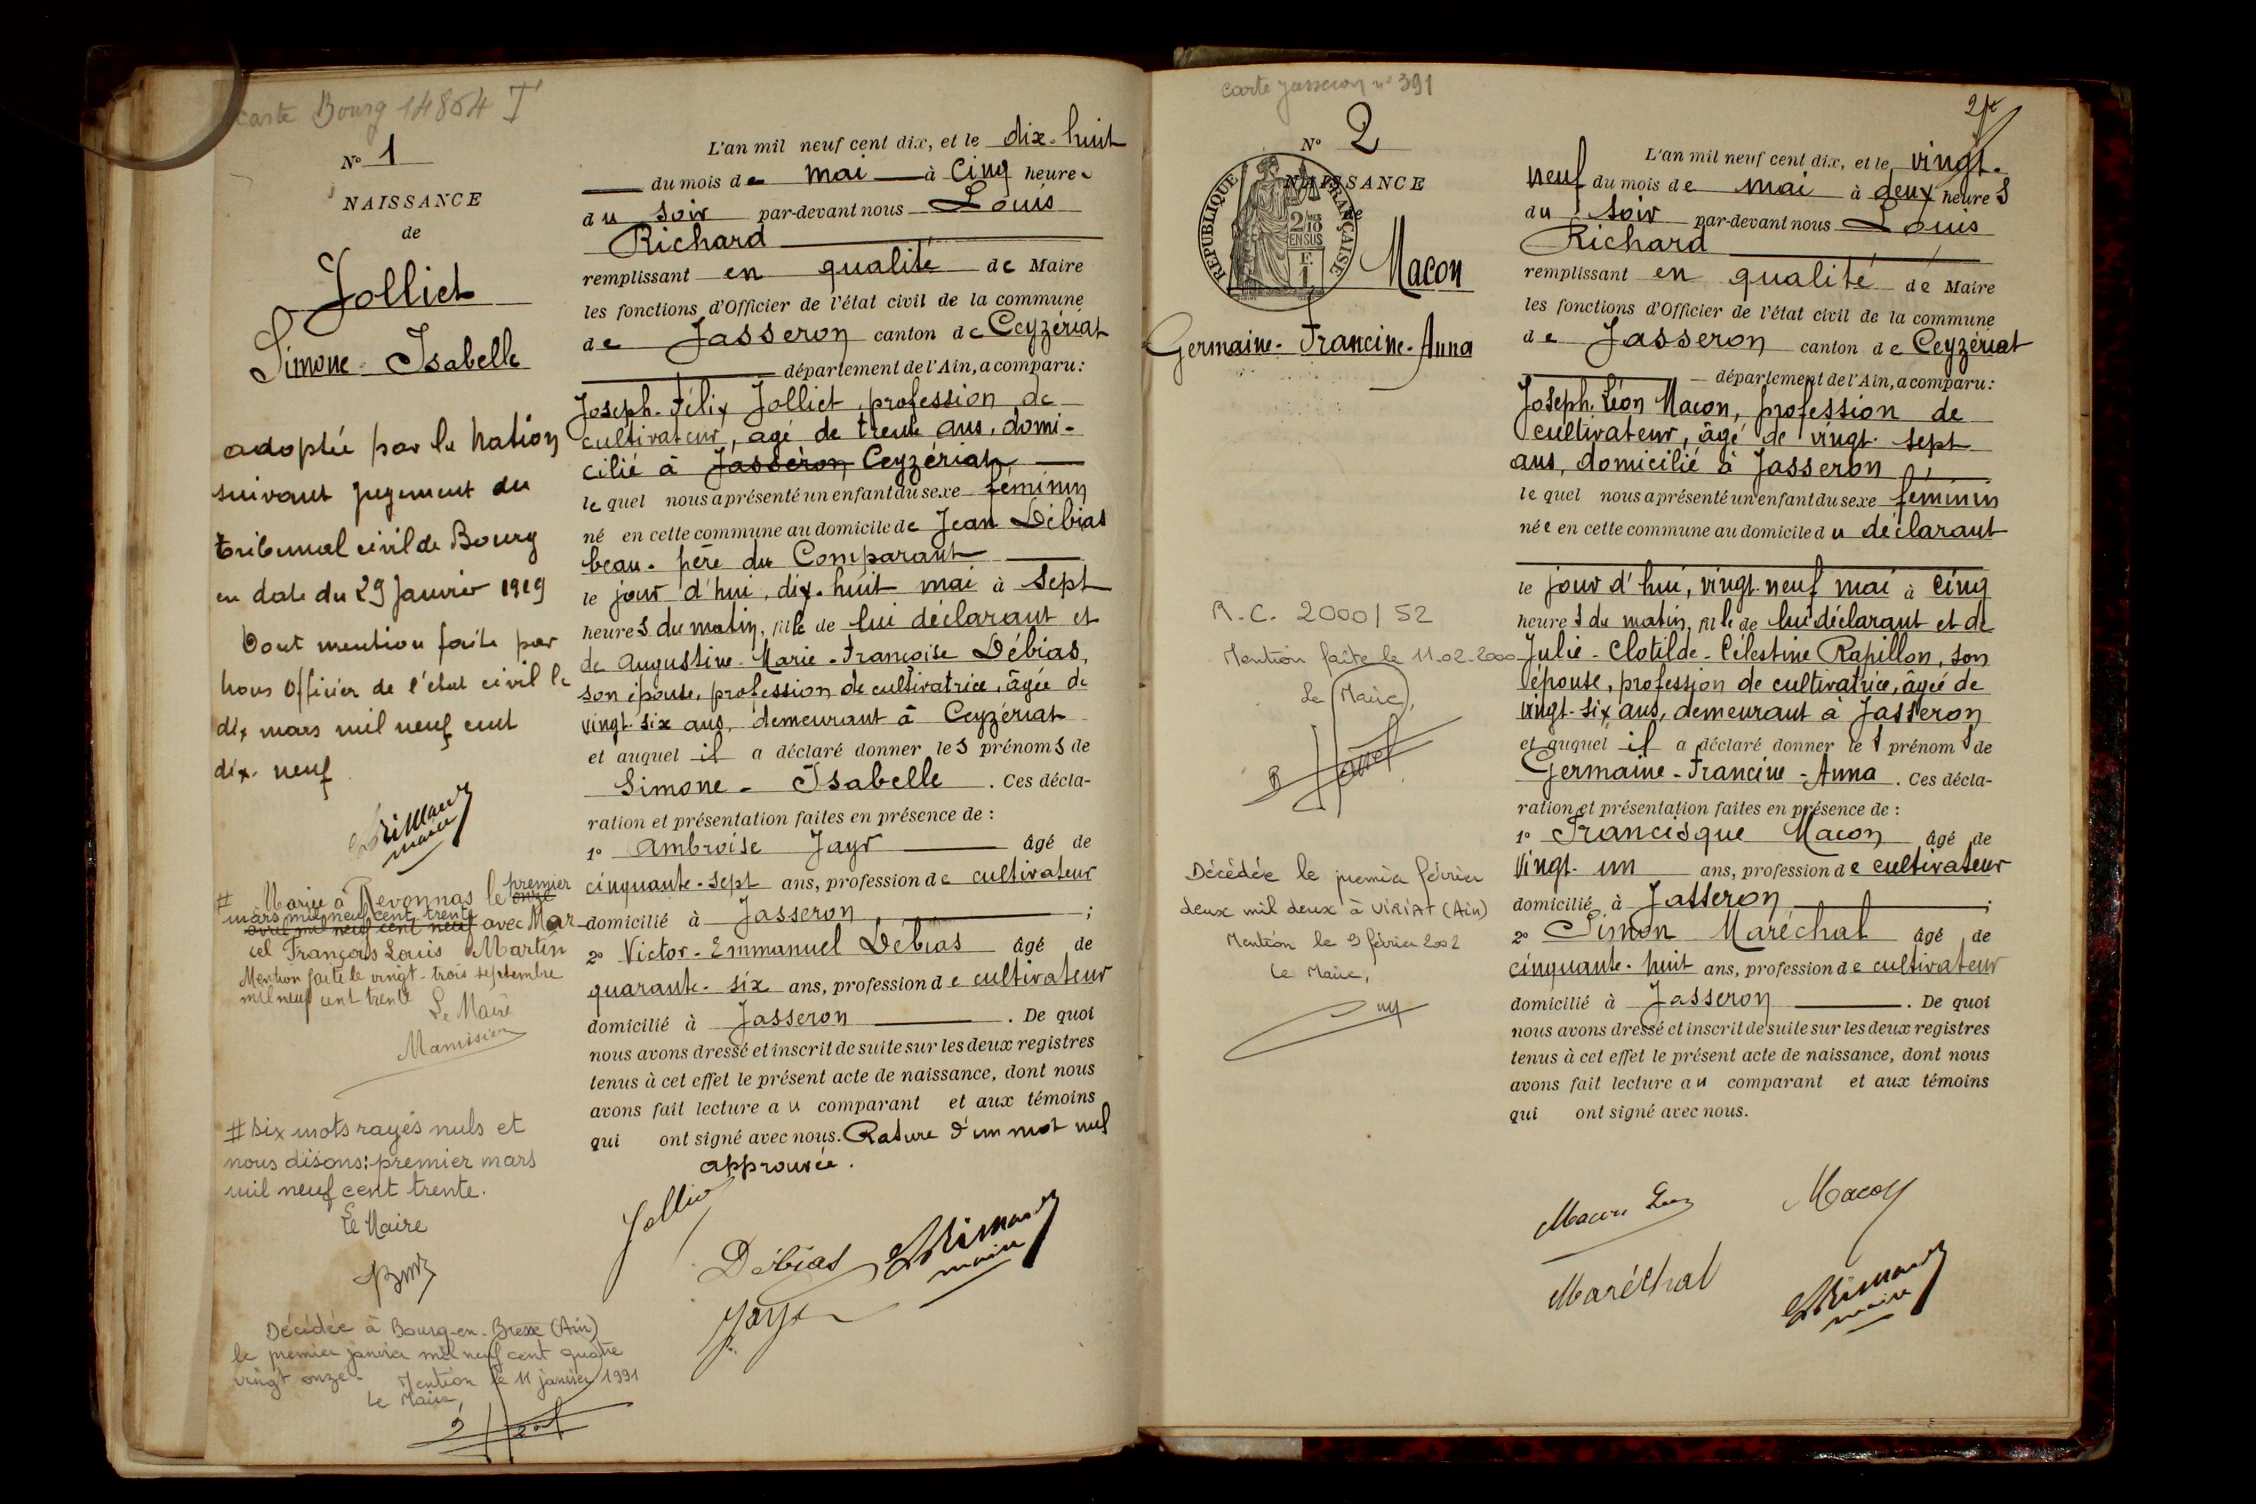 carte Bourg 14864 T
N° 1
NAISSANCE
de
Jolliet
Simone - Isabelle
adoptée par la Nation
suivant jugement du
tribunal civil de Bourg
en date du 29 Janvier 1919
Dont mention faite par
nous Officier de l'état civil le
dix mars mil neuf cent
dix-neuf
maire
# Mariée à Revonnas le premier onze
mars mil neuf cent trente
avril mil neuf cent neuf avec Mar-
cel François Louis Martin
Mention faite le vingt-trois septembre
mil neuf cent trente
Le Maire
# Six mots rayés nuls et
nous disons: premier mars
mil neuf cent trente.
Le Maire
Décédée à Bourg-en-Bresse (Ain)
le premier janvier mil neuf cent quatre
vingt onze. Mention le 11 janvier 1991
Le Maire,
L'an mil neuf cent dix, et le dix-huit
du mois de mai à cinq heures
du soir par-devant nous Louis
Richard
remplissant en qualité de Maire
les fonctions d'Officier de l'état civil de la commune
de Jasseron canton de Ceyzériat
département de l'Ain, a comparu:
Joseph-Félix Jolliet, profession de
cultivateur, âgé de trente ans, domi-
cilié à Jasseron Ceyzériat
le quel nous a présenté un enfant du sexe féminin
né en cette commune au domicile de Jean Débias
beau-père du Comparant
le jour d'hui, dix-huit mai à sept
heures du matin, fille de lui déclarant et
de Augustine-Marie-Françoise Débias,
son épouse, profession de cultivatrice, âgée de
vingt-six ans, demeurant à Ceyzériat
et auquel il a déclaré donner les prénoms de
Simone - Isabelle. Ces décla-
ration et présentation faites en présence de :
1° Ambroise Jayr âgé de
cinquante-sept ans, profession de cultivateur
domicilié à Jasseron ;
2° Victor-Emmanuel Débias âgé de
quarante-six ans, profession de cultivateur
domicilié à Jasseron. De quoi
nous avons dressé et inscrit de suite sur les deux registres
tenus à cet effet le présent acte de naissance, dont nous
avons fait lecture au comparant et aux témoins
qui ont signé avec nous. Rature d'un mot nul
approuvée.
Jolliet
Débias
maire
carte Jasseron n° 391
N° 2
NAISSANCE
de
RÉPUBLIQUE FRANÇAISE
2/10
EN SUS
F.
1
Macon
Germaine-Francine-Anna
R.C. 2000/52
Mention faite le 11.02.2000
Le Maire,
Décédée le premier février
deux mil deux à VIRIAT (Ain)
Mention le 9 février 2002
Le Maire,
L'an mil neuf cent dix, et le vingt-
neuf du mois de mai à deux heures
du soir par-devant nous Louis
Richard
remplissant en qualité de Maire
les fonctions d'Officier de l'état civil de la commune
de Jasseron canton de Ceyzériat
département de l'Ain, a comparu:
Joseph Léon Macon, profession de
cultivateur, âgé de vingt-sept
ans, domicilié à Jasseron
le quel nous a présenté un enfant du sexe féminin
née en cette commune au domicile du déclarant
le jour d'hui, vingt-neuf mai à cinq
heures du matin, fille de lui déclarant et de
Julie-Clotilde-Célestine Rapillon, son
épouse, profession de cultivatrice, âgée de
vingt-six ans, demeurant à Jasseron
et auquel il a déclaré donner les prénoms de
Germaine-Francine-Anna. Ces décla-
ration et présentation faites en présence de :
1° Francisque Macon âgé de
vingt-un ans, profession de cultivateur
domicilié à Jasseron ;
2° Simon Maréchal âgé de
cinquante-huit ans, profession de cultivateur
domicilié à Jasseron. De quoi
nous avons dressé et inscrit de suite sur les deux registres
tenus à cet effet le présent acte de naissance, dont nous
avons fait lecture au comparant et aux témoins
qui ont signé avec nous.
Macon
Macon
Maréchal
maire